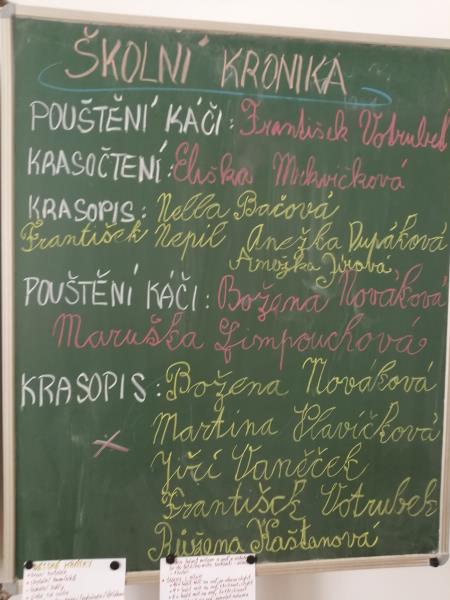 ŠKOLNÍ KRONIKA
POUŠTĚNÍ KÁČI: František Votrubek
KRASOČTENÍ: Eliška Mrkvičková
KRASOPIS: Nella Bačová
František Nepil Anežka Dupáková
Anežka Jírová
POUŠTĚNÍ KÁČI: Božena Nováková
Maruška Limpouchová
KRASOPIS: Božena Nováková
Martina Hlavičková
Jiří Vaněček
František Votrubek
Růžena Kaštanová